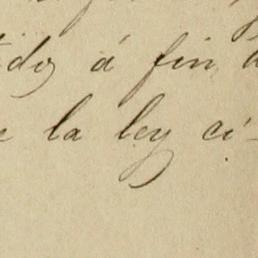 á fin
la ley ci-